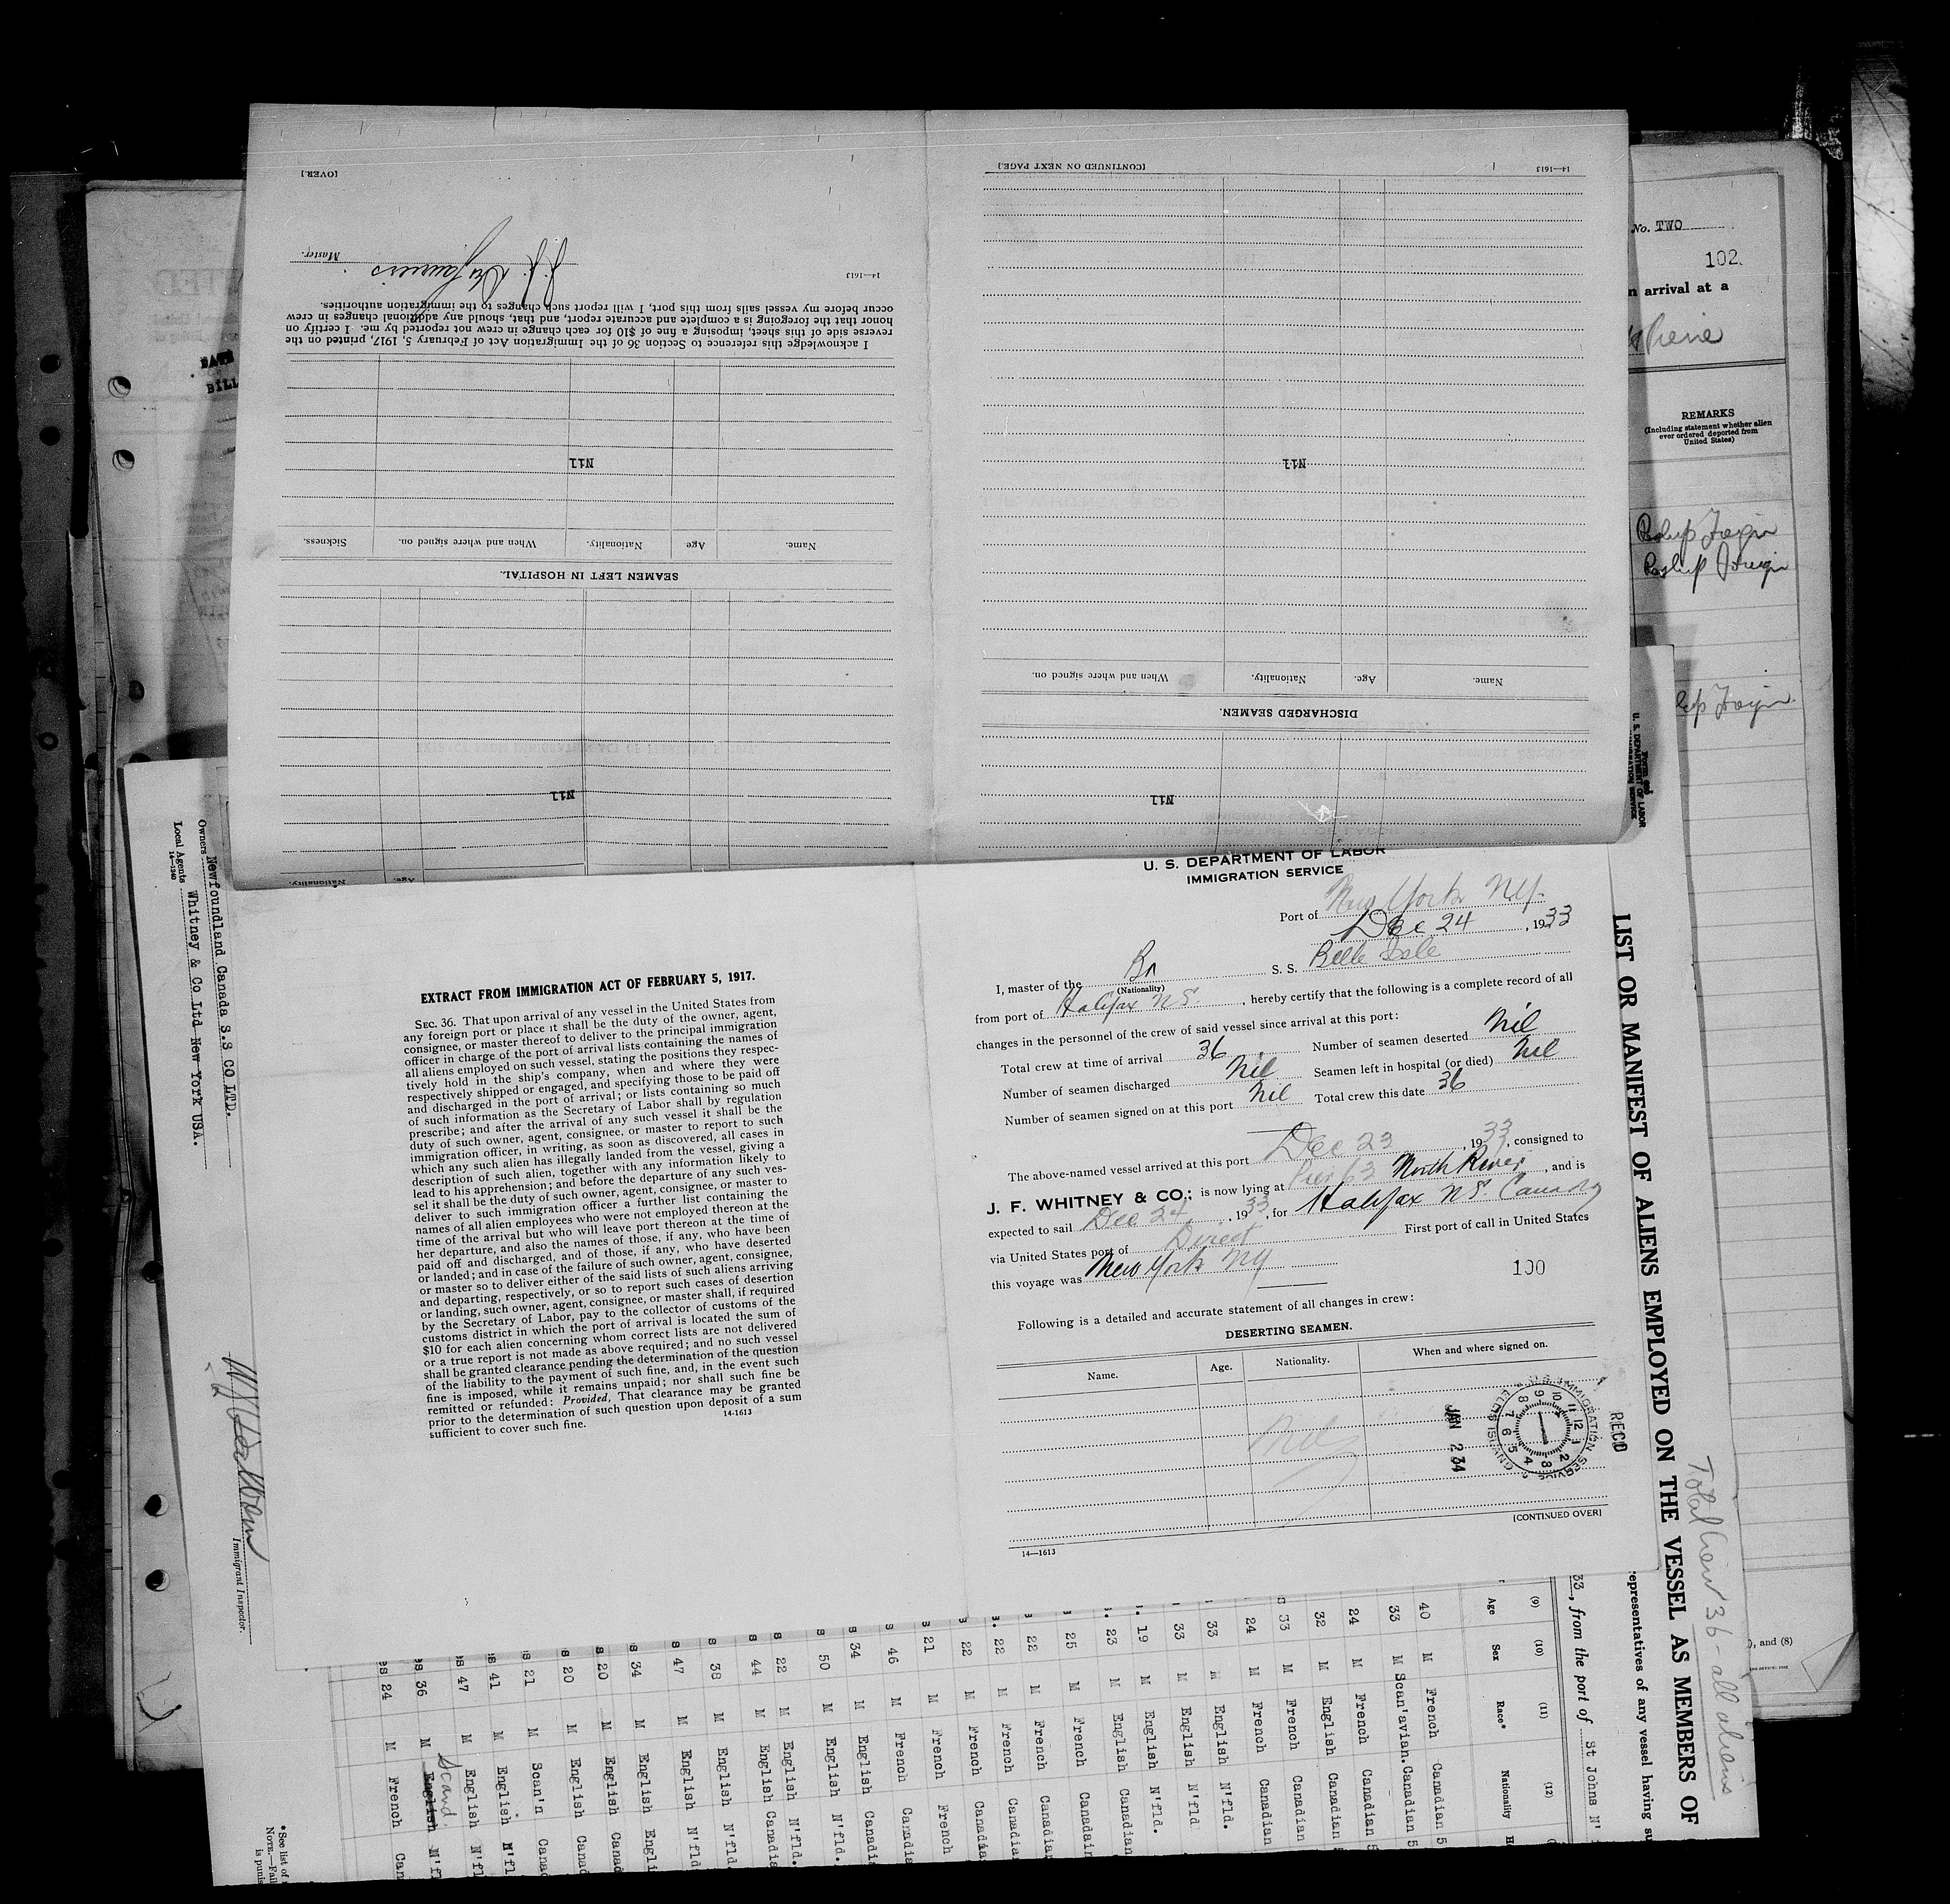 [OVER.]
Master.
14—1613
I acknowledge this reference to Section 36 of the Immigration Act of February 5, 1917, printed on the
reverse side of this sheet, imposing a fine of $10 for each change in crew not reported by me. I certify on
honor that the foregoing is a complete and accurate report, and that, should any additional changes in crew
occur before my vessel sails from this port, I will report such changes to the immigration authorities.
Nil
Name. Age Nationality. When and where signed on. Sickness.
SEAMEN LEFT IN HOSPITAL.
Nil
Nationality. Age.
[CONTINUED ON NEXT PAGE.]
14—1613
Nil
Name. Age. Nationality. When and where signed on.
DISCHARGED SEAMEN.
Nil
No. TWO
102
n arrival at a
REMARKS
(Including statement whether alien
ever ordered deported from
United States)
Reship Foreign
Reship Foreign
Foreign
), and (8)
DATE
BILL
U. S. DEPARTMENT OF LABOR
Owners Newfoundland Canada S.S CO LTD.
Local Agents Whitney & Co Ltd New York USA.
14—1240
Immigrant Inspector.
EXTRACT FROM IMMIGRATION ACT OF FEBRUARY 5, 1917.
SEC. 36. That upon arrival of any vessel in the United States from
any foreign port or place it shall be the duty of the owner, agent,
consignee, or master thereof to deliver to the principal immigration
officer in charge of the port of arrival lists containing the names of
all aliens employed on such vessel, stating the positions they respec-
tively hold in the ship's company, when and where they were
respectively shipped or engaged, and specifying those to be paid off
and discharged in the port of arrival; or lists containing so much
of such information as the Secretary of Labor shall by regulation
prescribe; and after the arrival of any such vessel it shall be the
duty of such owner, agent, consignee, or master to report to such
immigration officer, in writing, as soon as discovered, all cases in
which any such alien has illegally landed from the vessel, giving a
description of such alien, together with any information likely to
lead to his apprehension; and before the departure of any such ves-
sel it shall be the duty of such owner, agent, consignee, or master to
deliver to such immigration officer a further list containing the
names of all alien employees who were not employed thereon at the
time of the arrival but who will leave port thereon at the time of
her departure, and also the names of those, if any, who have been
paid off and discharged, and of those, if any, who have deserted
or landed; and in case of the failure of such owner, agent, consignee,
or master so to deliver either of the said lists of such aliens arriving
and departing, respectively, or so to report such cases of desertion
or landing, such owner, agent, consignee, or master shall, if required
by the Secretary of Labor, pay to the collector of customs of the
customs district in which the port of arrival is located the sum of
$10 for each alien concerning whom correct lists are not delivered
or a true report is not made as above required; and no such vessel
shall be granted clearance pending the determination of the question
of the liability to the payment of such fine, and, in the event such
fine is imposed, while it remains unpaid; nor shall such fine be
remitted or refunded: Provided, That clearance may be granted
prior to the determination of such question upon deposit of a sum
sufficient to cover such fine.
14-1613
U. S. DEPARTMENT OF LABOR
IMMIGRATION SERVICE
Port of New York N.Y.
Dec 24, 1933
I, master of the Br S. S. Belle Isle
(Nationality)
from port of Halifax N.S., hereby certify that the following is a complete record of all
changes in the personnel of the crew of said vessel since arrival at this port:
Total crew at time of arrival 36 Number of seamen deserted Nil
Number of seamen discharged Nil Seamen left in hospital (or died) Nil
Number of seamen signed on at this port Nil Total crew this date 36
The above-named vessel arrived at this port Dec 23, 1933, consigned to
J. F. WHITNEY & CO.; is now lying at Pier 63 North River, and is
expected to sail Dec 24, 1933, for Halifax N.S. Canada
via United States port of Direct First port of call in United States
this voyage was New York NY
100
Following is a detailed and accurate statement of all changes in crew:
DESERTING SEAMEN.
Name. Age. Nationality. When and where signed on.
Nil
REC'D
JAN 2 34
U.S. IMMIGRATION SERVICE
ELLIS ISLAND
[CONTINUED OVER]
14—1613
LIST OR MANIFEST OF ALIENS EMPLOYED ON THE VESSEL AS MEMBERS OF
Total Crew 36 - all aliens
epresentatives of any vessel having su
33, from the port of St Johns N'
(9) (10) (11) (12)
Age Sex Race* Nationality
40 M French Canadian 5
33 M Scan'avian. Canadian 5
24 M French Canadian 5
32 M English Canadian
33 M French Canadian
24 M French Canadian
33 M English N'fld.
33 M English N'fld
19 M English N'fld.
23 M English Canadian
25 M French Canadain
22 M French Canadian
22 M French Canadia
22 M French Canadia
21 M French French
46 M French Canadia
34 M English Canadi
50 M English N'fld.
22 M English N'fld.
44 M English Canadia
38 M English N'fld.
47 M English N'fld
34 M English Engli
20 M English Canad
20 M English Canad
21 M Scan'n Canad
41 M English N'fl
47 M English N'fl
36 M English Scand. N'f
24 M French Can
*See list of
NOTE.—Fail
is punis